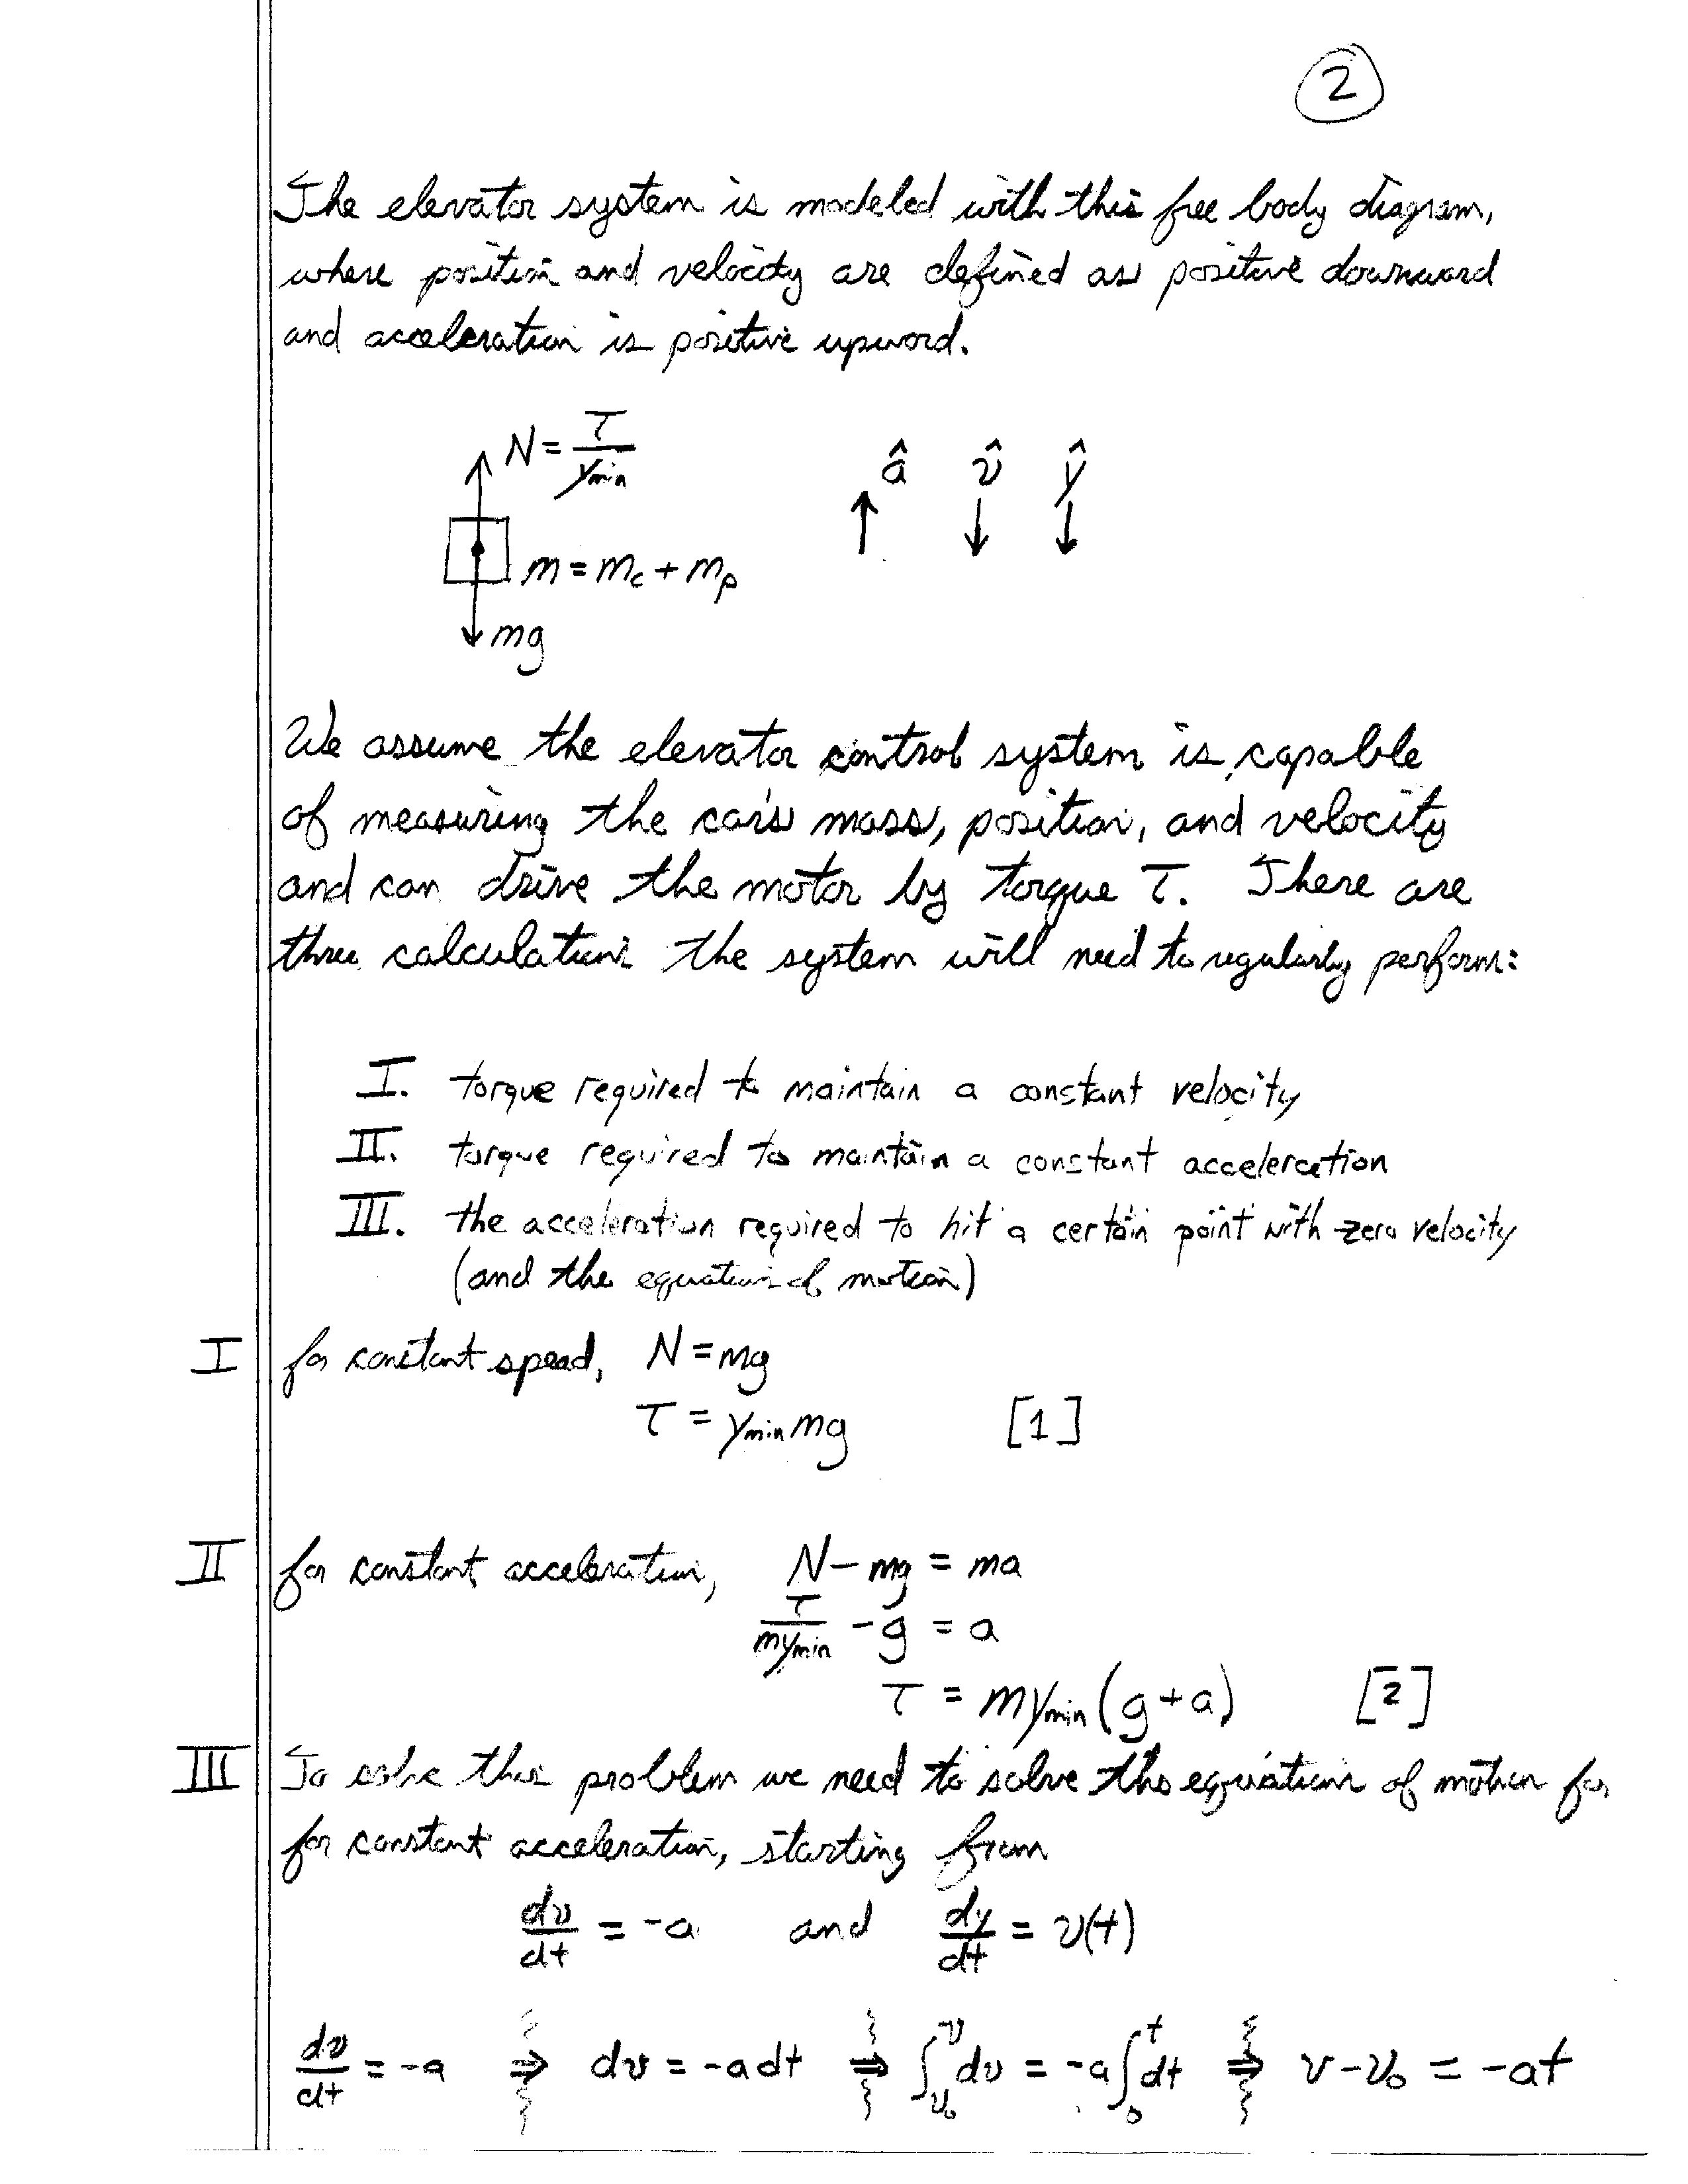 2
The elevator system is modeled with this free body diagram,
where position and velocity are defined as positive downward
and acceleration is positive upword.
N = τ/y_min
â v̂ ŷ
m = m_c + m_p
mg
We assume the elevator control system is capable
of measuring the car's mass, position, and velocity
and can drive the motor by torque τ. There are
three calculations the system will need to regularly perform:
I. torque required to maintain a constant velocity
II. torque required to maintain a constant acceleration
III. the acceleration required to hit a certain point with zero velocity
(and the equations of motion)
I for constant speed, N = mg
τ = y_min mg [1]
II for constant acceleration, N - mg = ma
τ/(m y_min) - g = a
τ = m y_min (g + a) [2]
III To solve this problem we need to solve the equations of motion for
for constant acceleration, starting from
dv/dt = -a and dy/dt = v(t)
dv/dt = -a ⇒ dv = -a dt ⇒ ∫_{v₀}^{v} dv = -a ∫_0^t dt ⇒ v - v₀ = -at